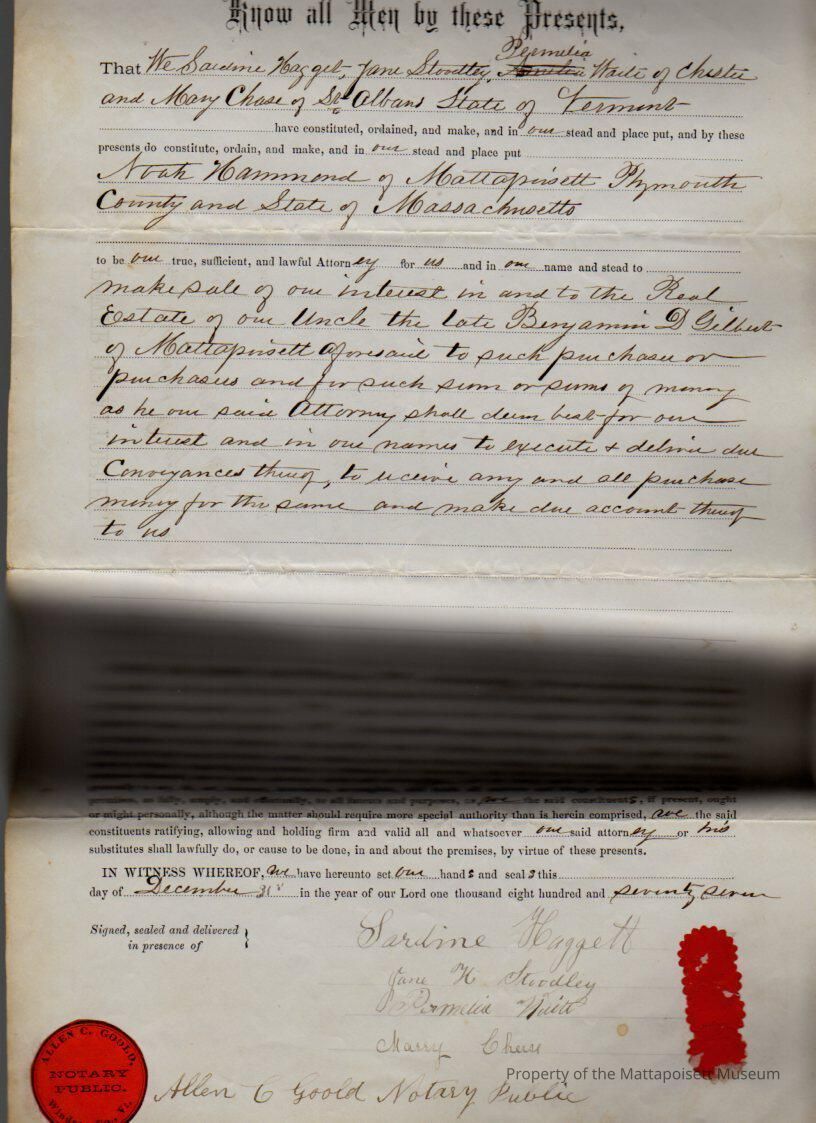 Know all Men by these Presents,
Permelia
That We Sardine Haggett, Jane Stoodley, Amelia Waite of Chester
and Mary Chase of St Albans State of Vermont
have constituted, ordained, and make, and in our stead and place put, and by these
presents do constitute, ordain, and make, and in our stead and place put
Noah Hammond of Mattapoisett Plymouth
County and State of Massachusetts
to be our true, sufficient, and lawful Attorney for us and in our name and stead to
make sale of our interest in and to the Real
Estate of our Uncle the late Benjamin D Gilbert
of Mattapoisett aforesaid to such purchaser or
purchasers and for such sum or sums of money
as he our said Attorney shall deem best for our
interest and in our names to execute & deliver due
Conveyances thereof, to receive any and all purchase
money for the same and make due account thereof
to us
premises, as fully, amply, and effectually, to all intents and purposes, as we the said constituents, if present, ought
or might personally, although the matter should require more special authority than is herein comprised, we the said
constituents ratifying, allowing and holding firm and valid all and whatsoever our said attorney or his
substitutes shall lawfully do, or cause to be done, in and about the premises, by virtue of these presents.
IN WITNESS WHEREOF, We have hereunto set our hands and seals this
day of December 31st in the year of our Lord one thousand eight hundred and seventy seven
Signed, sealed and delivered
in presence of
Sardine Haggett
Jane H Stoodley
Permelia Waite
Marry Chese
Property of the Mattapoisett Museum
ALLEN C. GOOLD,
NOTARY
PUBLIC.
Allen C Goold Notary Public